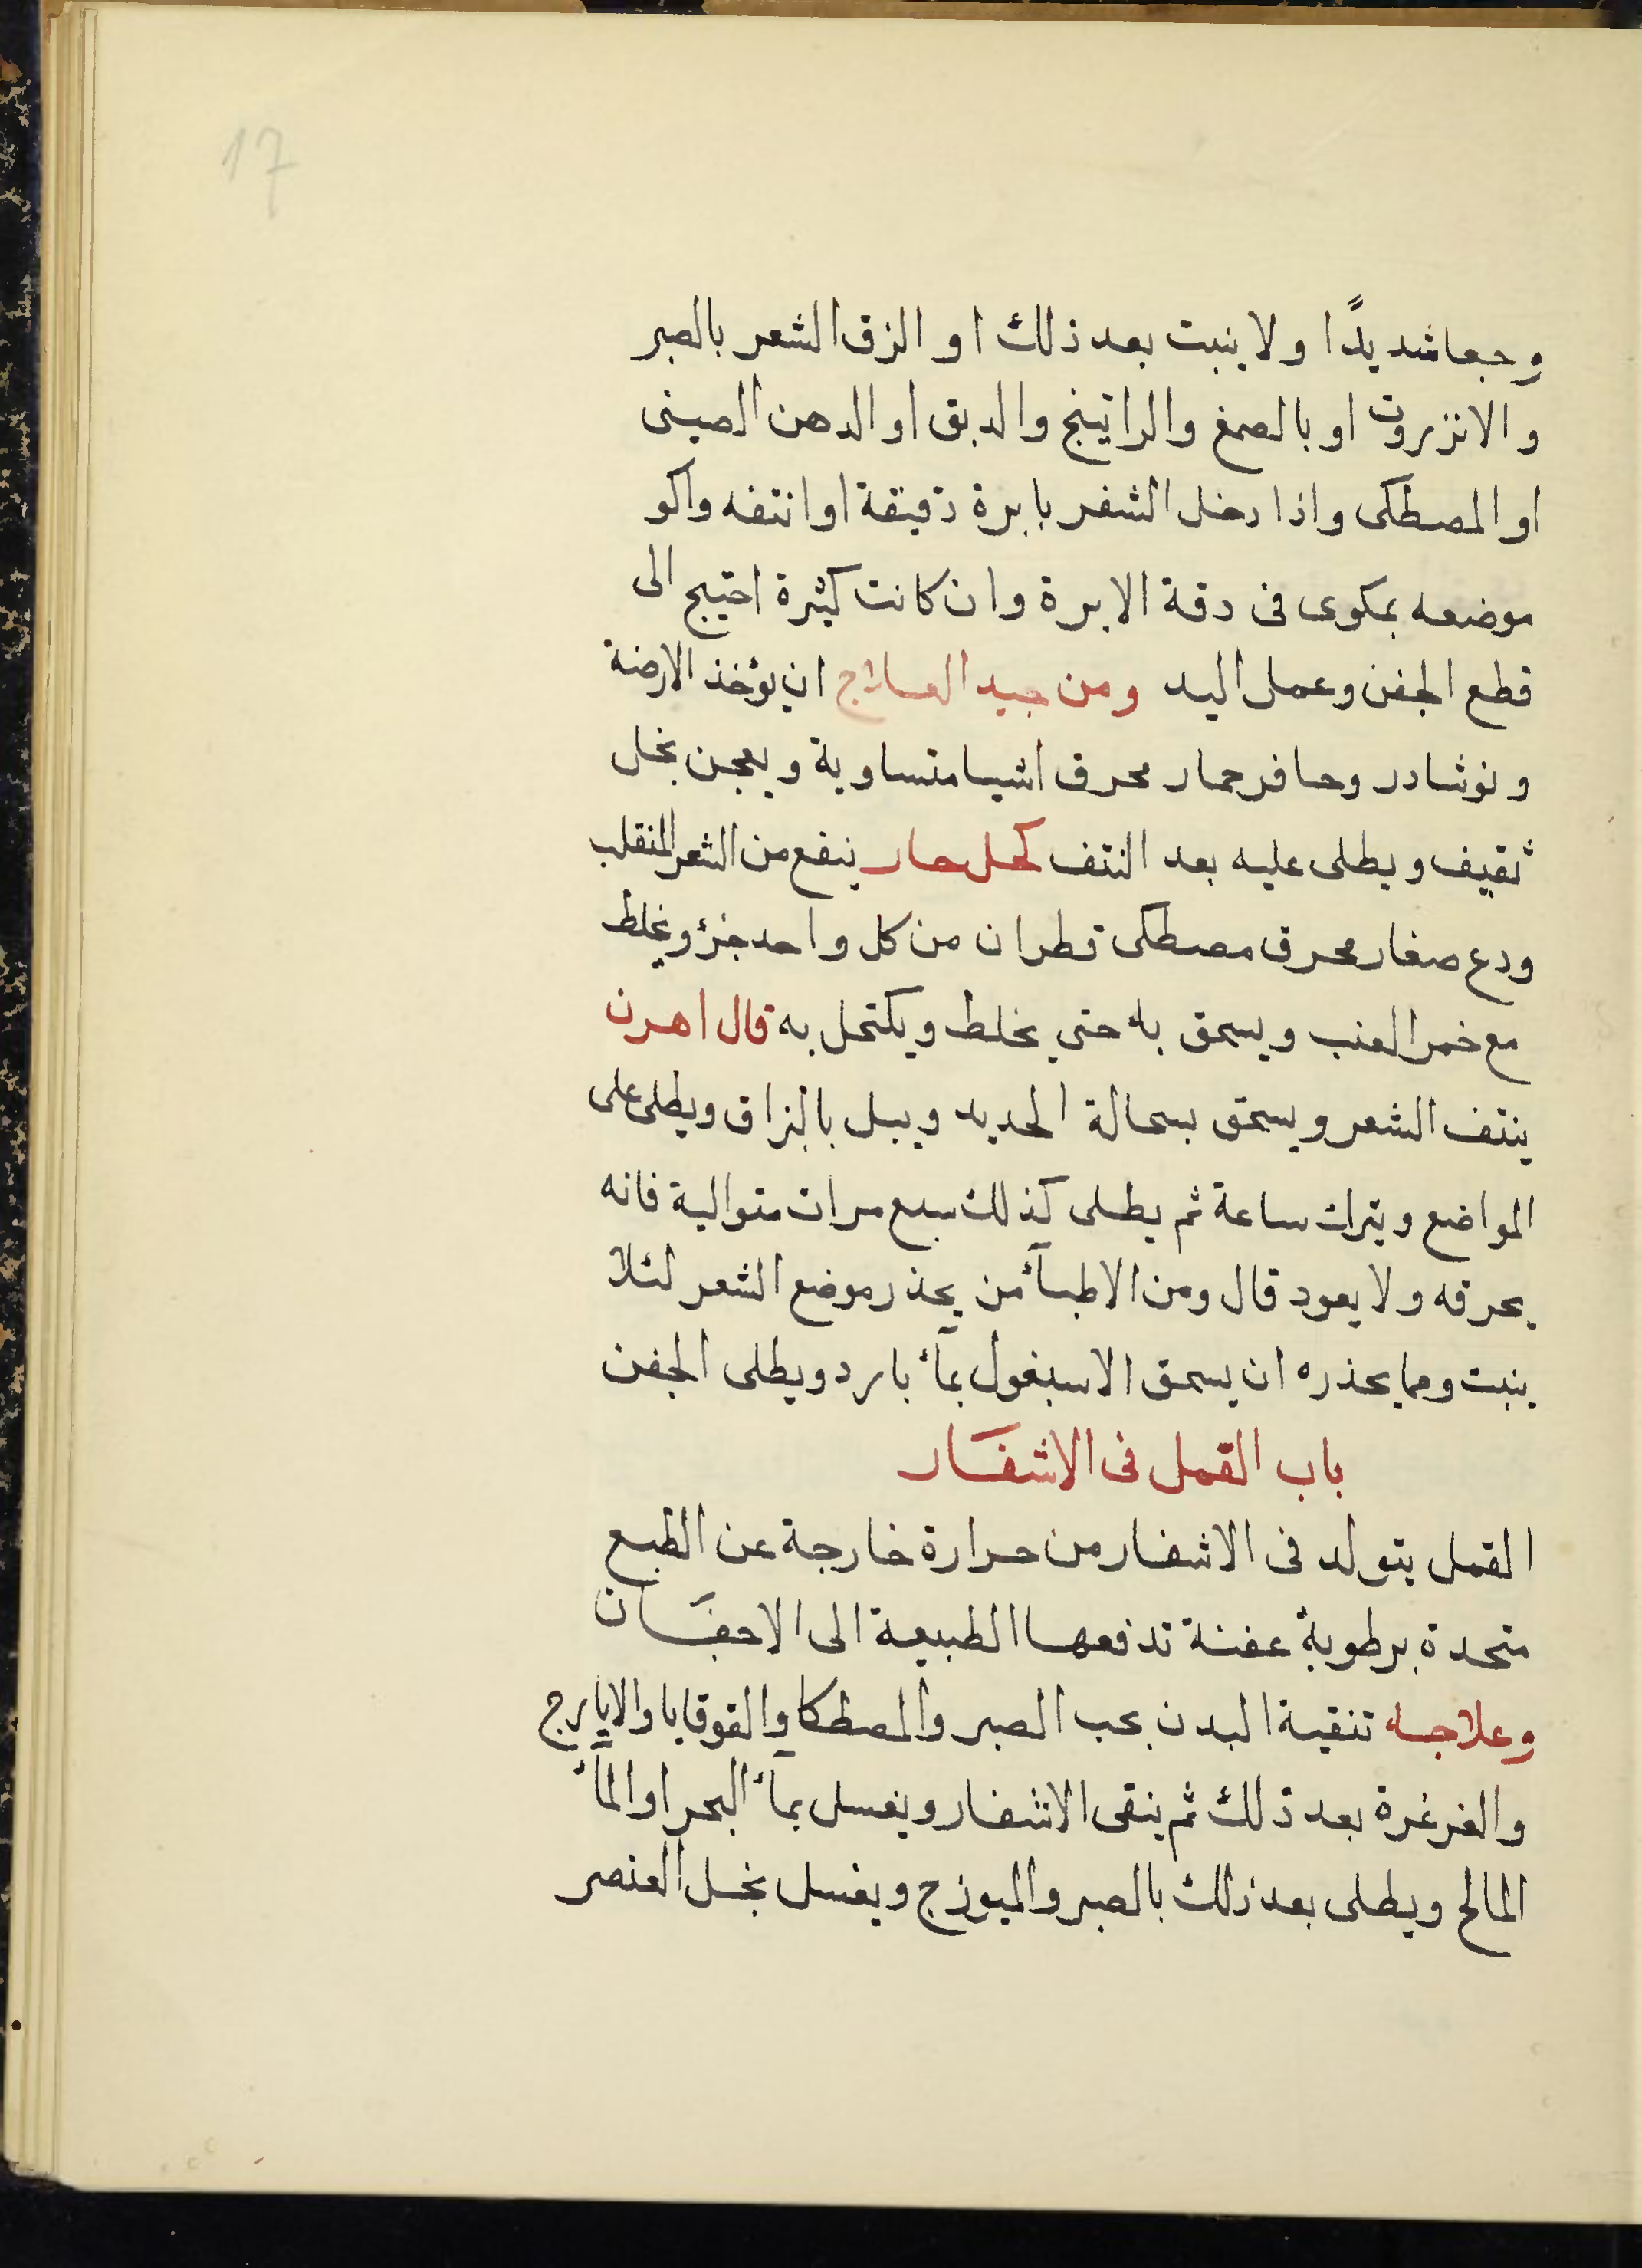 17
وجعا شديدًا ولا ينبت بعد ذلك او الزق الشعر بالصبر
والانزروت او بالصمغ والراتينج والدبق او الدهن الصينى
او المصطكى واذا دخل الشفر بابرة دقيقة او انتفه واكو
موضعه بمكوى فى دقة الابرة وان كانت كثيرة احتيج الى
قطع الجفن وعمل اليد ومن جيد العلاج ان يؤخذ الارضة
ونوشادر وحافر حمار محرق اشيا متساوية ويعجن بخل
ثقيف ويطلى عليه بعد النتف كحل حار ينفع من الشعر المنقلب
ودع صغار محرق مصطكى قطران من كل واحد جزؤ ويخلط
مع خمر العنب ويسحق به حتي يخلط ويكتحل به قال اهرن
ينتف الشعر ويسحق بسحالة الحديد ويبل بالبزاق ويطلى على
المواضع ويترك ساعة ثم يطلى كذلك سبع مرات متوالية فانه
يحرقه ولا يعود قال ومن الاطبآء من يحذر موضع الشعر لئلا
ينبت ومما يحذره ان يسحق الاسبغول بمآء بارد ويطلى الجفن
باب القمل فى الاشفار
القمل يتولد فى الاشفار من حرارة خارجة عن الطبع
متحدة برطوبة عفنة تدفعها الطبيعة الى الاجفان
وعلاجه تنقية البدن بحب الصبر والمصطكا والقوقايا والايارج
والغرغرة بعد ذلك ثم ينقى الاشفار ويغسل بمآء البحر او المآء
المالح ويطلى بعد ذلك بالصبر والميوزج ويغسل بخل العنصر